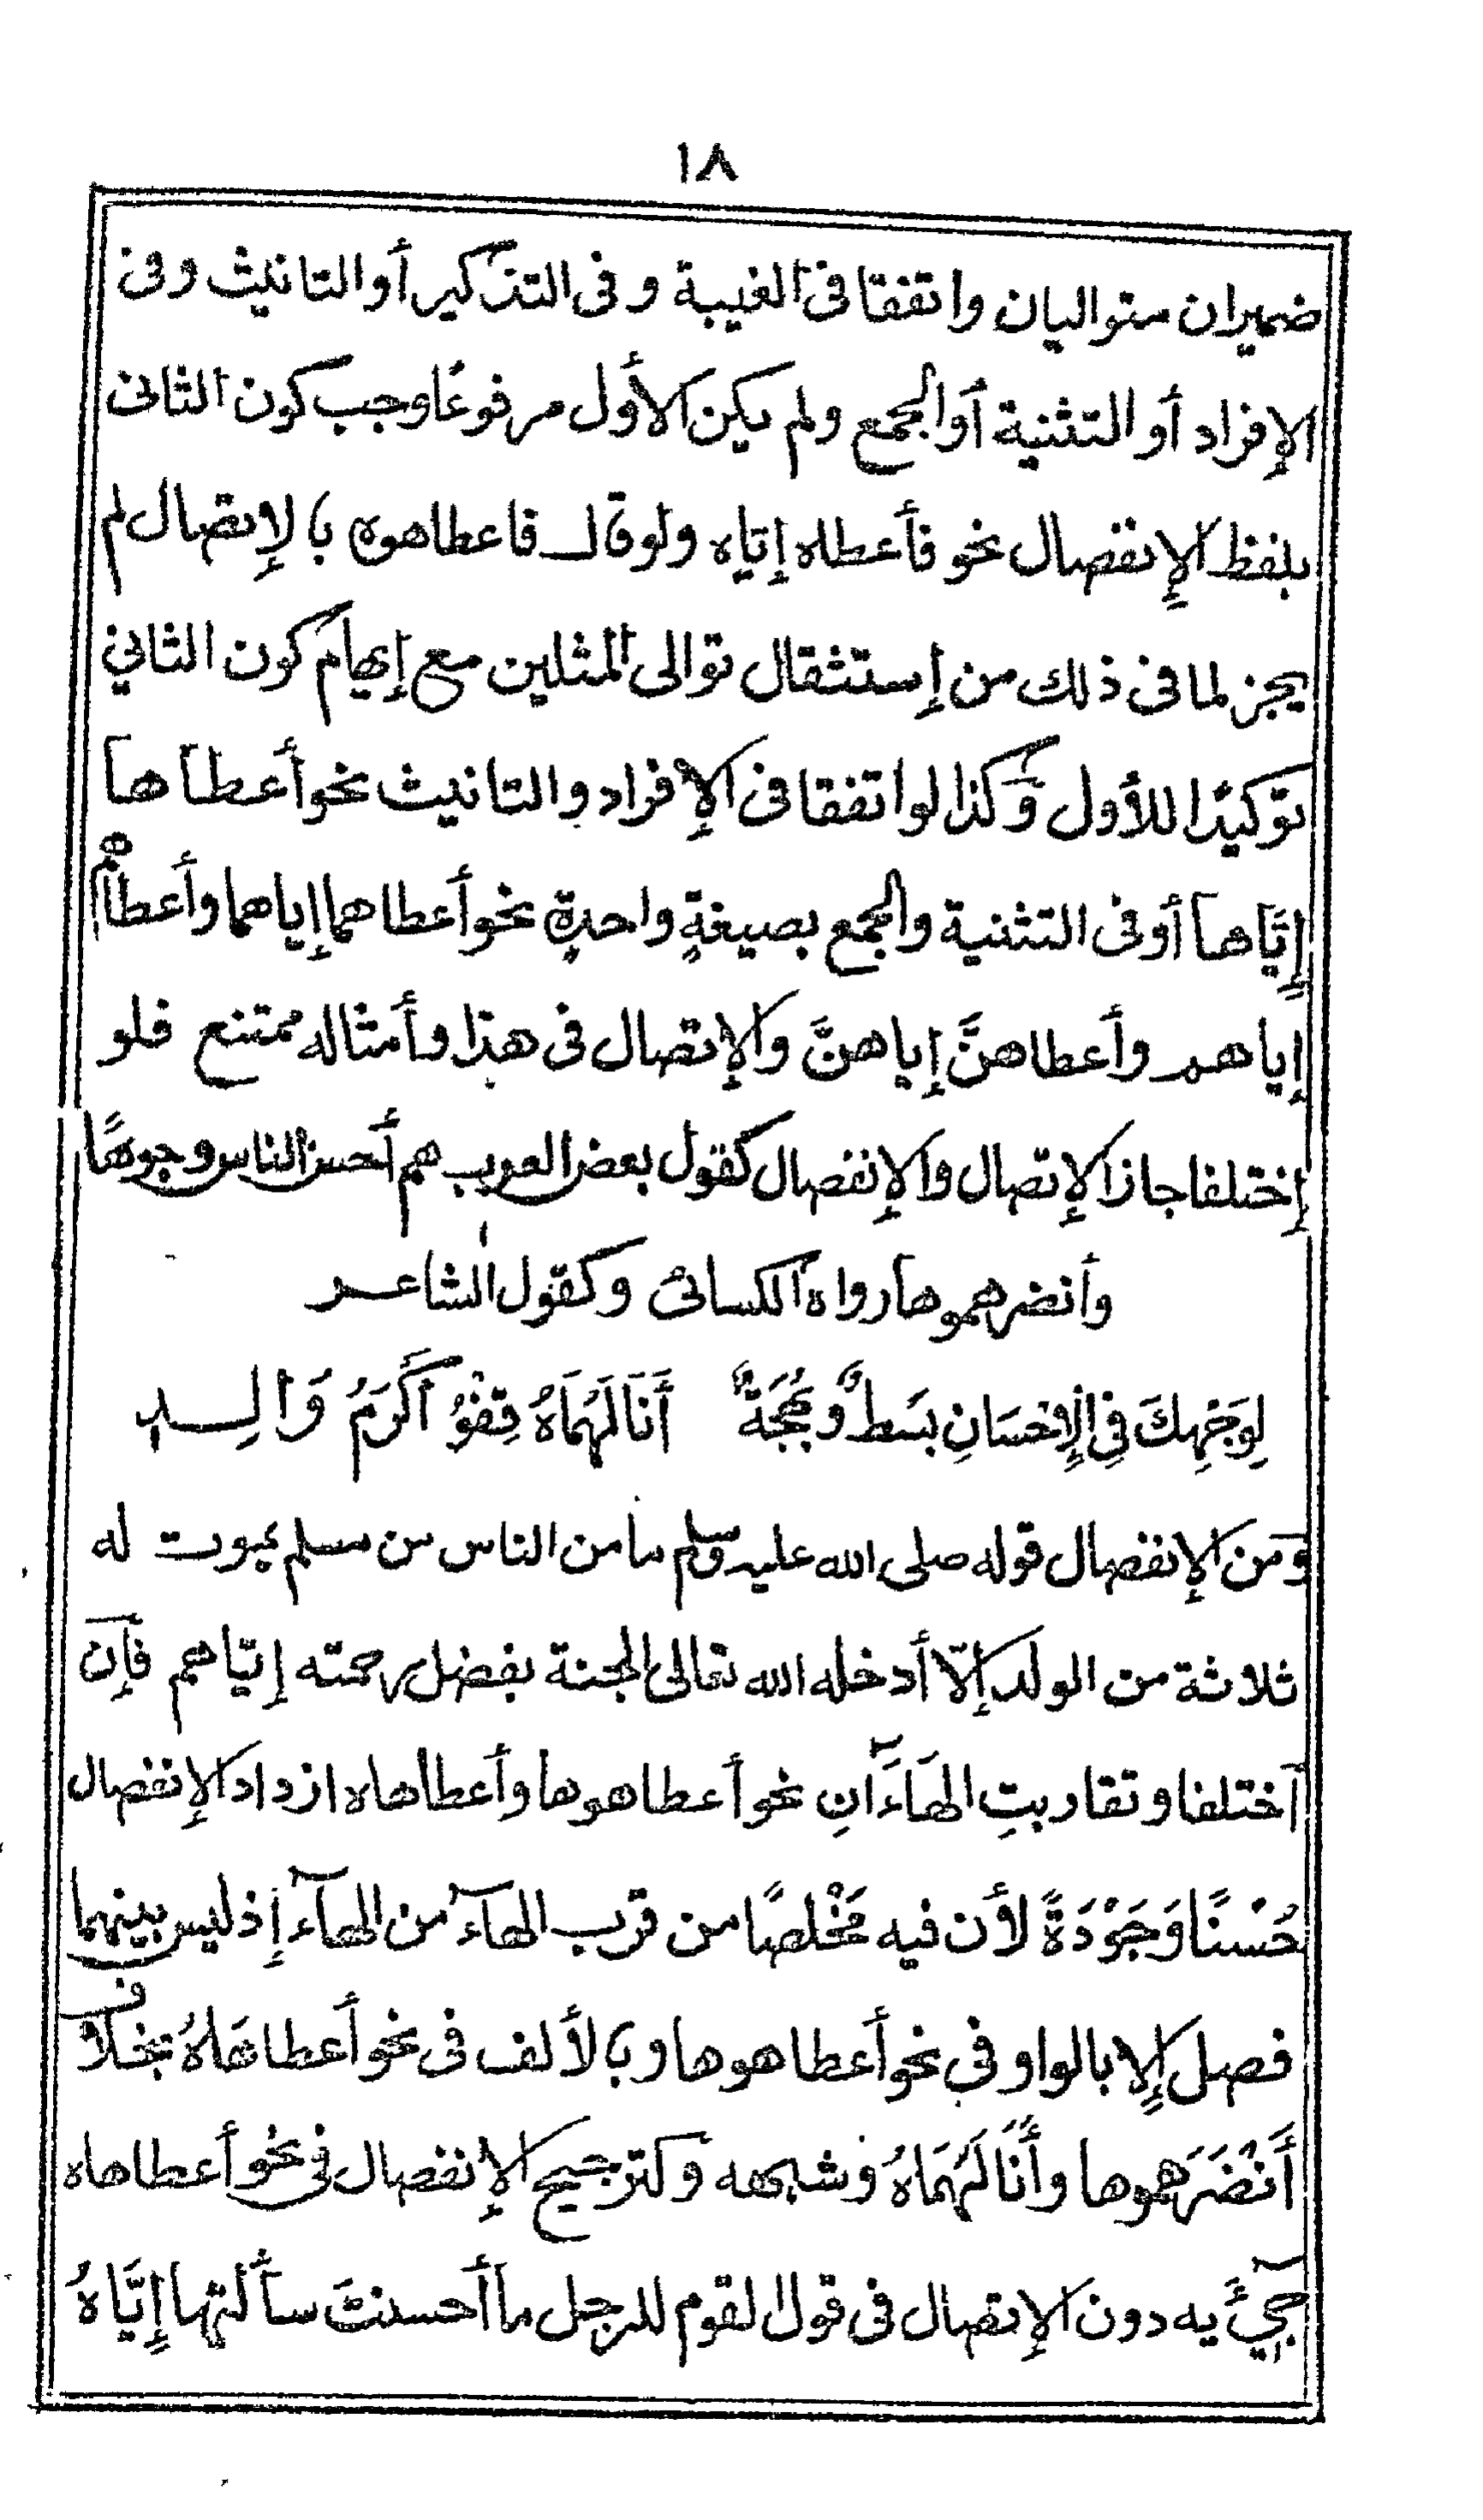 ١٨
ضميران متواليان واتفقا فى الغيبة وفى التذكير أو التانيث وفى
الإفراد أو التثنية أو الجمع ولم يكن الأول مرفوعًا وجب كون الثانى
بلفظ الإنفصال نحو فأعطاه إياه ولو قال فاعطاهوه بالإتصال لم
يجز لما فى ذلك من إستثقال توالى المثلين مع إيهام كون الثاني
توكيدًا للأول وكذا لو اتفقا فى الإفراد والتانيث نحو أعطاها
إيَّاها أو فى التثنية والجمع بصيغةٍ واحدةٍ نحو أعطاهما إياهما وأعطاهم
إياهم وأعطاهنَّ إياهنَّ والإتصال فى هذا وأمثاله ممتنع فلو
إختلفا جاز الإتصال والإنفصال كقول بعض العرب هم أحسن الناس وجوهًا
وأنضرهموها رواه الكسائى وكقول الشاعر
لِوَجْهِكَ فِى الْإِحْسَانِ بَسْطٌ وَبَهْجَةٌ أَنَالَهُمَاهُ قِفْوُ أَكْرَمُ وَالِدِ
ومن الإنفصال قوله صلى الله عليه وسلم ما من الناس من مسلم يموت له
ثلاثة من الولد إلّا أدخله الله تعالى الجنة بفضل رحمته إيّاهم فإن
اختلفا وتقاربتِ الهاءَانِ نحو أعطاهوها وأعطاهاه ازداد الإنفصال
حُسْنًا وَجَوْدَةً لأن فيه مَخْلصًا من قرب الهآء من الهآء إذ ليس بينهما
فصل إلا بالواو في نحو أعطاهوها وبالألف فى نحو أعطاهَاهُ بخلاف
أَنْضَرَهموها وأَنَالَهُمَاهُ وشبهه وكترجيح الإنفصال فى نحو أعطاهاه
جيْءَ به دون الإتصال فى قول القوم للرجل ما أحسنتَ سألتها إِيَّاهُ